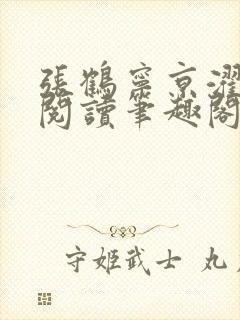 張鶴寧京濯
閱讀筆趣閣
守姬武士 丸